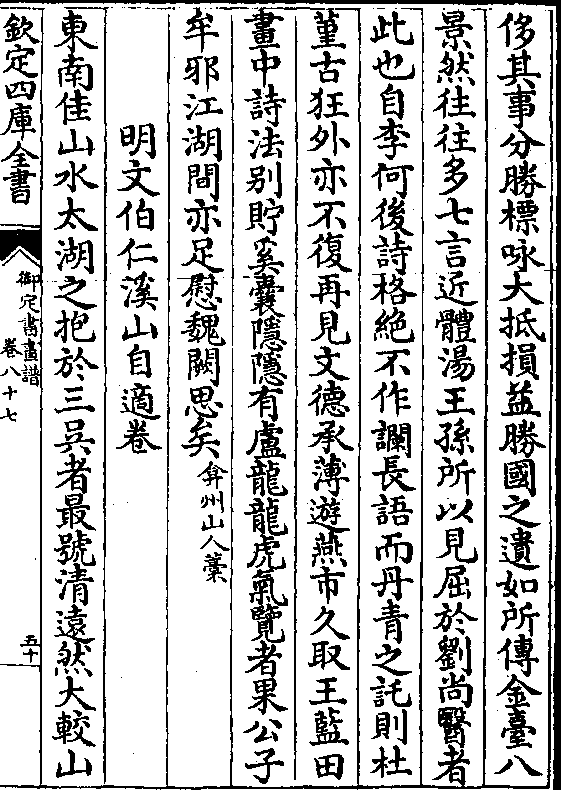 侈其事分勝標咏大抵損益勝國之遺如所傳金臺八
景然往往多七言近體湯王孫所以見屈於劉尚醫者
此也自李何後詩格絶不作讕長語而丹青之託則杜
菫古狂外亦不復再見文德承薄遊燕市久取王藍田
畫中詩法别貯奚囊隱隱有盧龍龍虎氣覽者果公子
牟邪江湖間亦足慰魏闕思矣弇州山人藁
明文伯仁溪山自適卷
東南佳山水太湖之抱於三吳者最號清遠然大較山
欽定四庫全書
御定書畫譜
卷八十七
五十